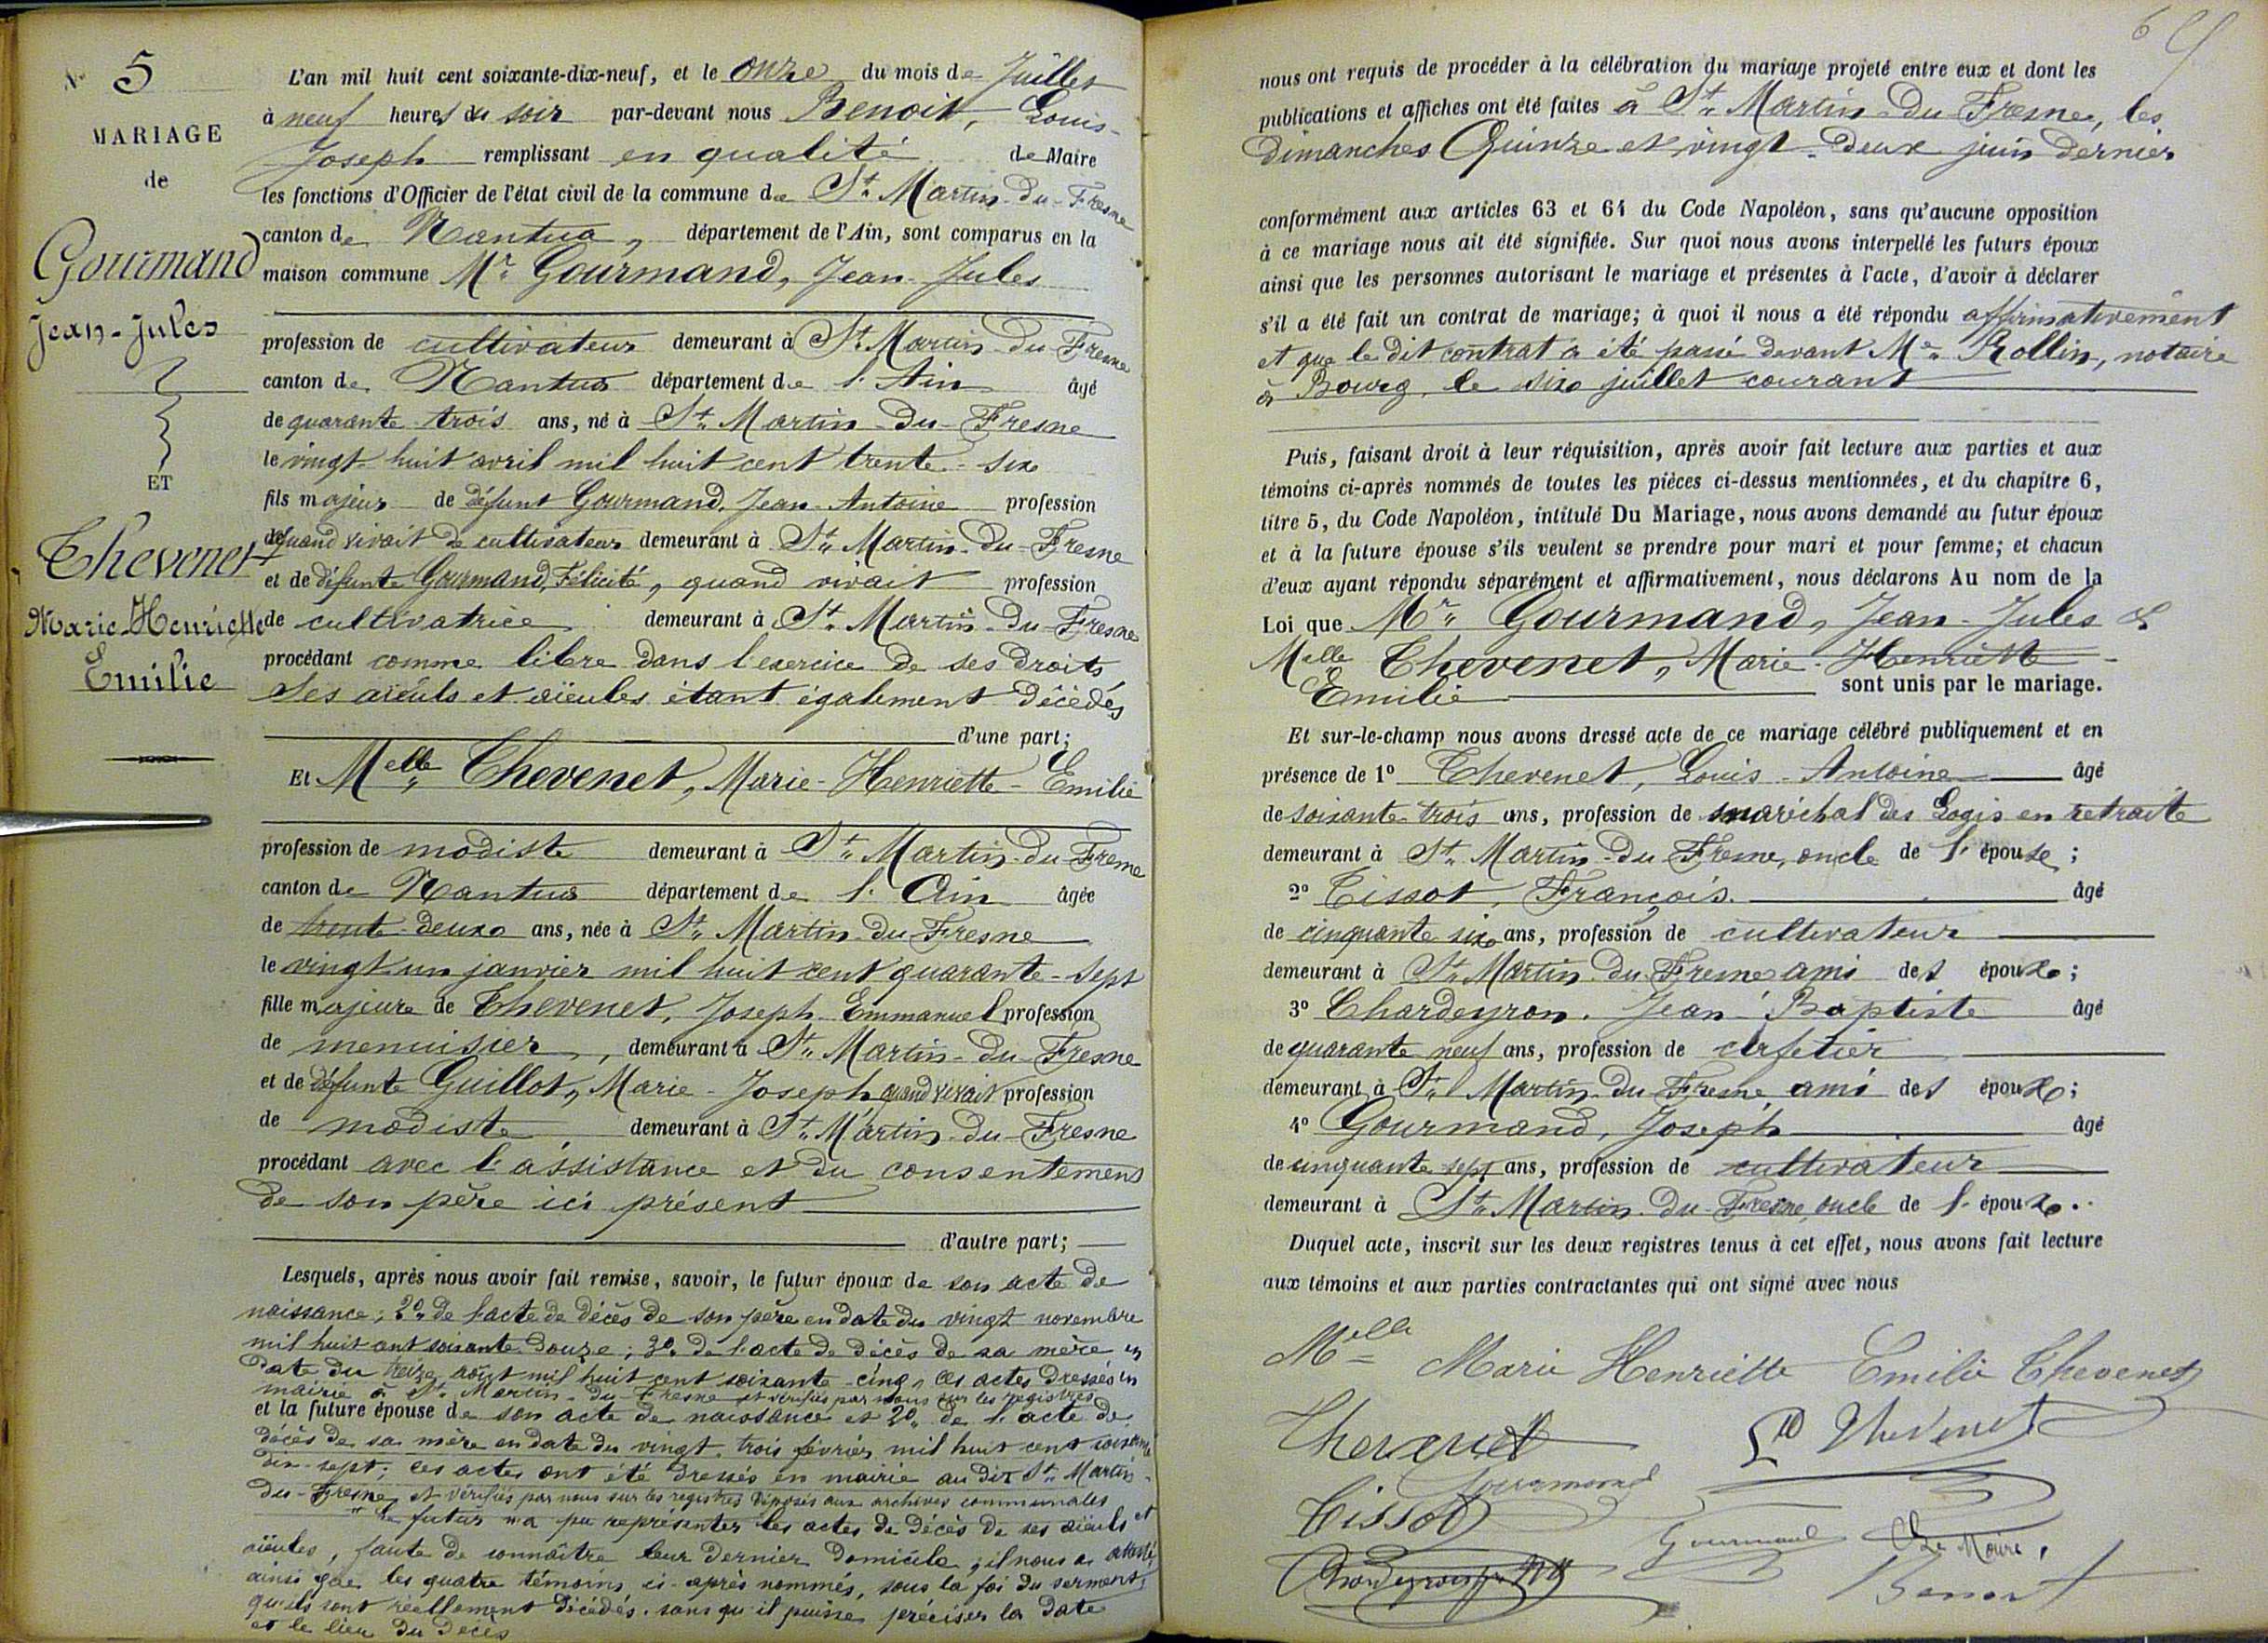 N° 5
MARIAGE
de
Gourmand
Jean-Jules
ET
Thevenet
Marie-Henriette
Emilie
L'an mil huit cent soixante-dix-neuf, et le onze du mois de Juillet
à neuf heures du soir par-devant nous Benoit, Louis-
Joseph remplissant en qualité de Maire
les fonctions d'Officier de l'état civil de la commune de St Martin-du-Fresne
canton de Nantua, département de l'Ain, sont comparus en la
maison commune Mr Gourmand, Jean-Jules
profession de cultivateur demeurant à St Martin-du-Fresne
canton de Nantua département de l'Ain âgé
de quarante-trois ans, né à St Martin-du-Fresne
le vingt-huit avril mil huit cent trente-six
fils majeur de défunt Gourmand, Jean-Antoine profession
de quand vivait de cultivateur demeurant à St Martin-du-Fresne
et de défunte Gourmand, Félicité, quand vivait profession
de cultivatrice demeurant à St Martin-du-Fresne
procédant comme libre dans l'exercice de ses droits
ses aïeuls et aïeules étant également décédés
d'une part;
Et Melle Thevenet, Marie-Henriette-Emilie
profession de modiste demeurant à St Martin-du-Fresne
canton de Nantua département de l'Ain âgée
de trente-deux ans, née à St Martin-du-Fresne
le vingt-un janvier mil huit cent quarante-sept
fille majeure de Thevenet, Joseph-Emmanuel profession
de menuisier, demeurant à St Martin-du-Fresne
et de défunte Guillot, Marie-Joseph quand vivait profession
de modiste demeurant à St Martin-du-Fresne
procédant avec l'assistance et du consentement
de son père ici présent
d'autre part;
Lesquels, après nous avoir fait remise, savoir, le futur époux de son acte de
naissance; 2° de l'acte de décès de son père en date du vingt novembre
mil huit cent soixante-douze; 3° de l'acte de décès de sa mère en
date du treize août mil huit cent soixante-cinq, ces actes dressés en
mairie à St Martin-du-Fresne et vérifiés par nous sur les registres
et la future épouse de son acte de naissance et 2° de l'acte de
décès de sa mère en date du vingt-trois février mil huit cent soixante
dix-sept; ces actes ont été dressés en mairie au dit St Martin-
du-Fresne, et vérifiés par nous sur les registres déposés aux archives communales
le futur n'a pu représenter les actes de décès de ses aïeuls et
aïeules, faute de connaître leur dernier domicile, il nous a attesté,
ainsi que les quatre témoins ci-après nommés, sous la foi du serment,
qu'ils sont réellement décédés, sans qu'il puisse préciser la date
et le lieu du décès
6
nous ont requis de procéder à la célébration du mariage projeté entre eux et dont les
publications et affiches ont été faites à St Martin-du-Fresne, les
dimanches Quinze et vingt-deux juin dernier
conformément aux articles 63 et 64 du Code Napoléon, sans qu'aucune opposition
à ce mariage nous ait été signifiée. Sur quoi nous avons interpellé les futurs époux
ainsi que les personnes autorisant le mariage et présentes à l'acte, d'avoir à déclarer
s'il a été fait un contrat de mariage; à quoi il nous a été répondu affirmativement
et que le dit contrat a été passé devant Me Rollin, notaire
à Bourg, le six juillet courant
Puis, faisant droit à leur réquisition, après avoir fait lecture aux parties et aux
témoins ci-après nommés de toutes les pièces ci-dessus mentionnées, et du chapitre 6,
titre 5, du Code Napoléon, intitulé Du Mariage, nous avons demandé au futur époux
et à la future épouse s'ils veulent se prendre pour mari et pour femme; et chacun
d'eux ayant répondu séparément et affirmativement, nous déclarons Au nom de la
Loi que Mr Gourmand, Jean-Jules &
Melle Thevenet, Marie-Henriette-
Emilie sont unis par le mariage.
Et sur-le-champ nous avons dressé acte de ce mariage célébré publiquement et en
présence de 1° Thevenet, Louis-Antoine âgé
de soixante-trois ans, profession de maréchal des Logis en retraite
demeurant à St Martin-du-Fresne, oncle de l'épouse;
2° Tissot, François âgé
de cinquante-six ans, profession de cultivateur
demeurant à St Martin-du-Fresne, ami des époux;
3° Chardeyron, Jean-Baptiste âgé
de quarante-neuf ans, profession de cafetier
demeurant à St Martin-du-Fresne, ami des époux;
4° Gourmand, Joseph âgé
de cinquante-sept ans, profession de cultivateur
demeurant à St Martin-du-Fresne, oncle de l'époux.
Duquel acte, inscrit sur les deux registres tenus à cet effet, nous avons fait lecture
aux témoins et aux parties contractantes qui ont signé avec nous
Melle Marie Henriette Emilie Thevenet
Thevenet Thevenet
Gourmand
Tissot
Gourmand Le Maire,
Chardeyron Benoit